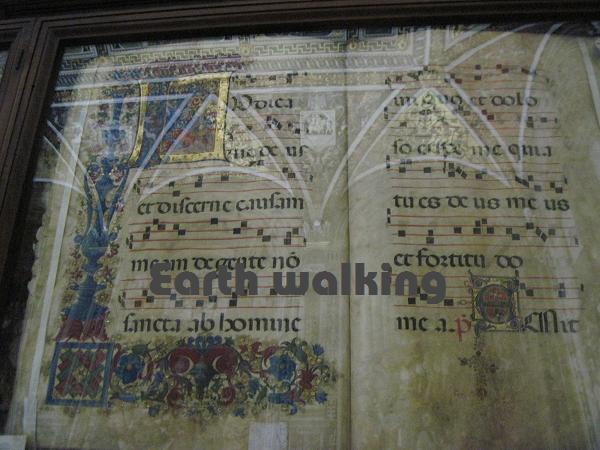 Iudica
me de us
et discerne causam
meam de gente nō
sancta ab homine
iniquo et dolo
so eripe me quia
tu es de us me us
et fortitu do
me a. p
Earth walking